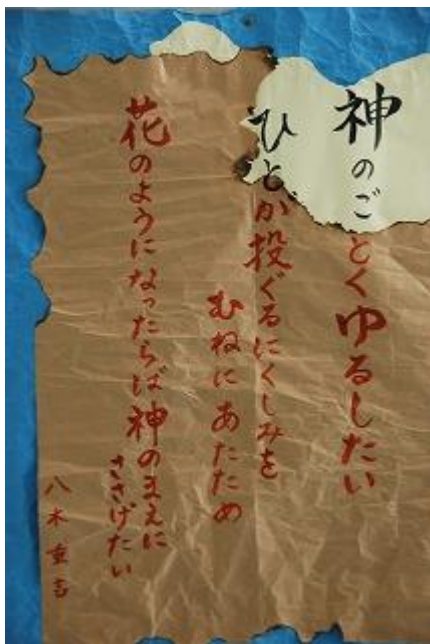 神のごとくゆるしたい
ひとが投ぐるにくしみを
むねにあたため
花のようになったらば神のまえに
ささげたい
八木重吉